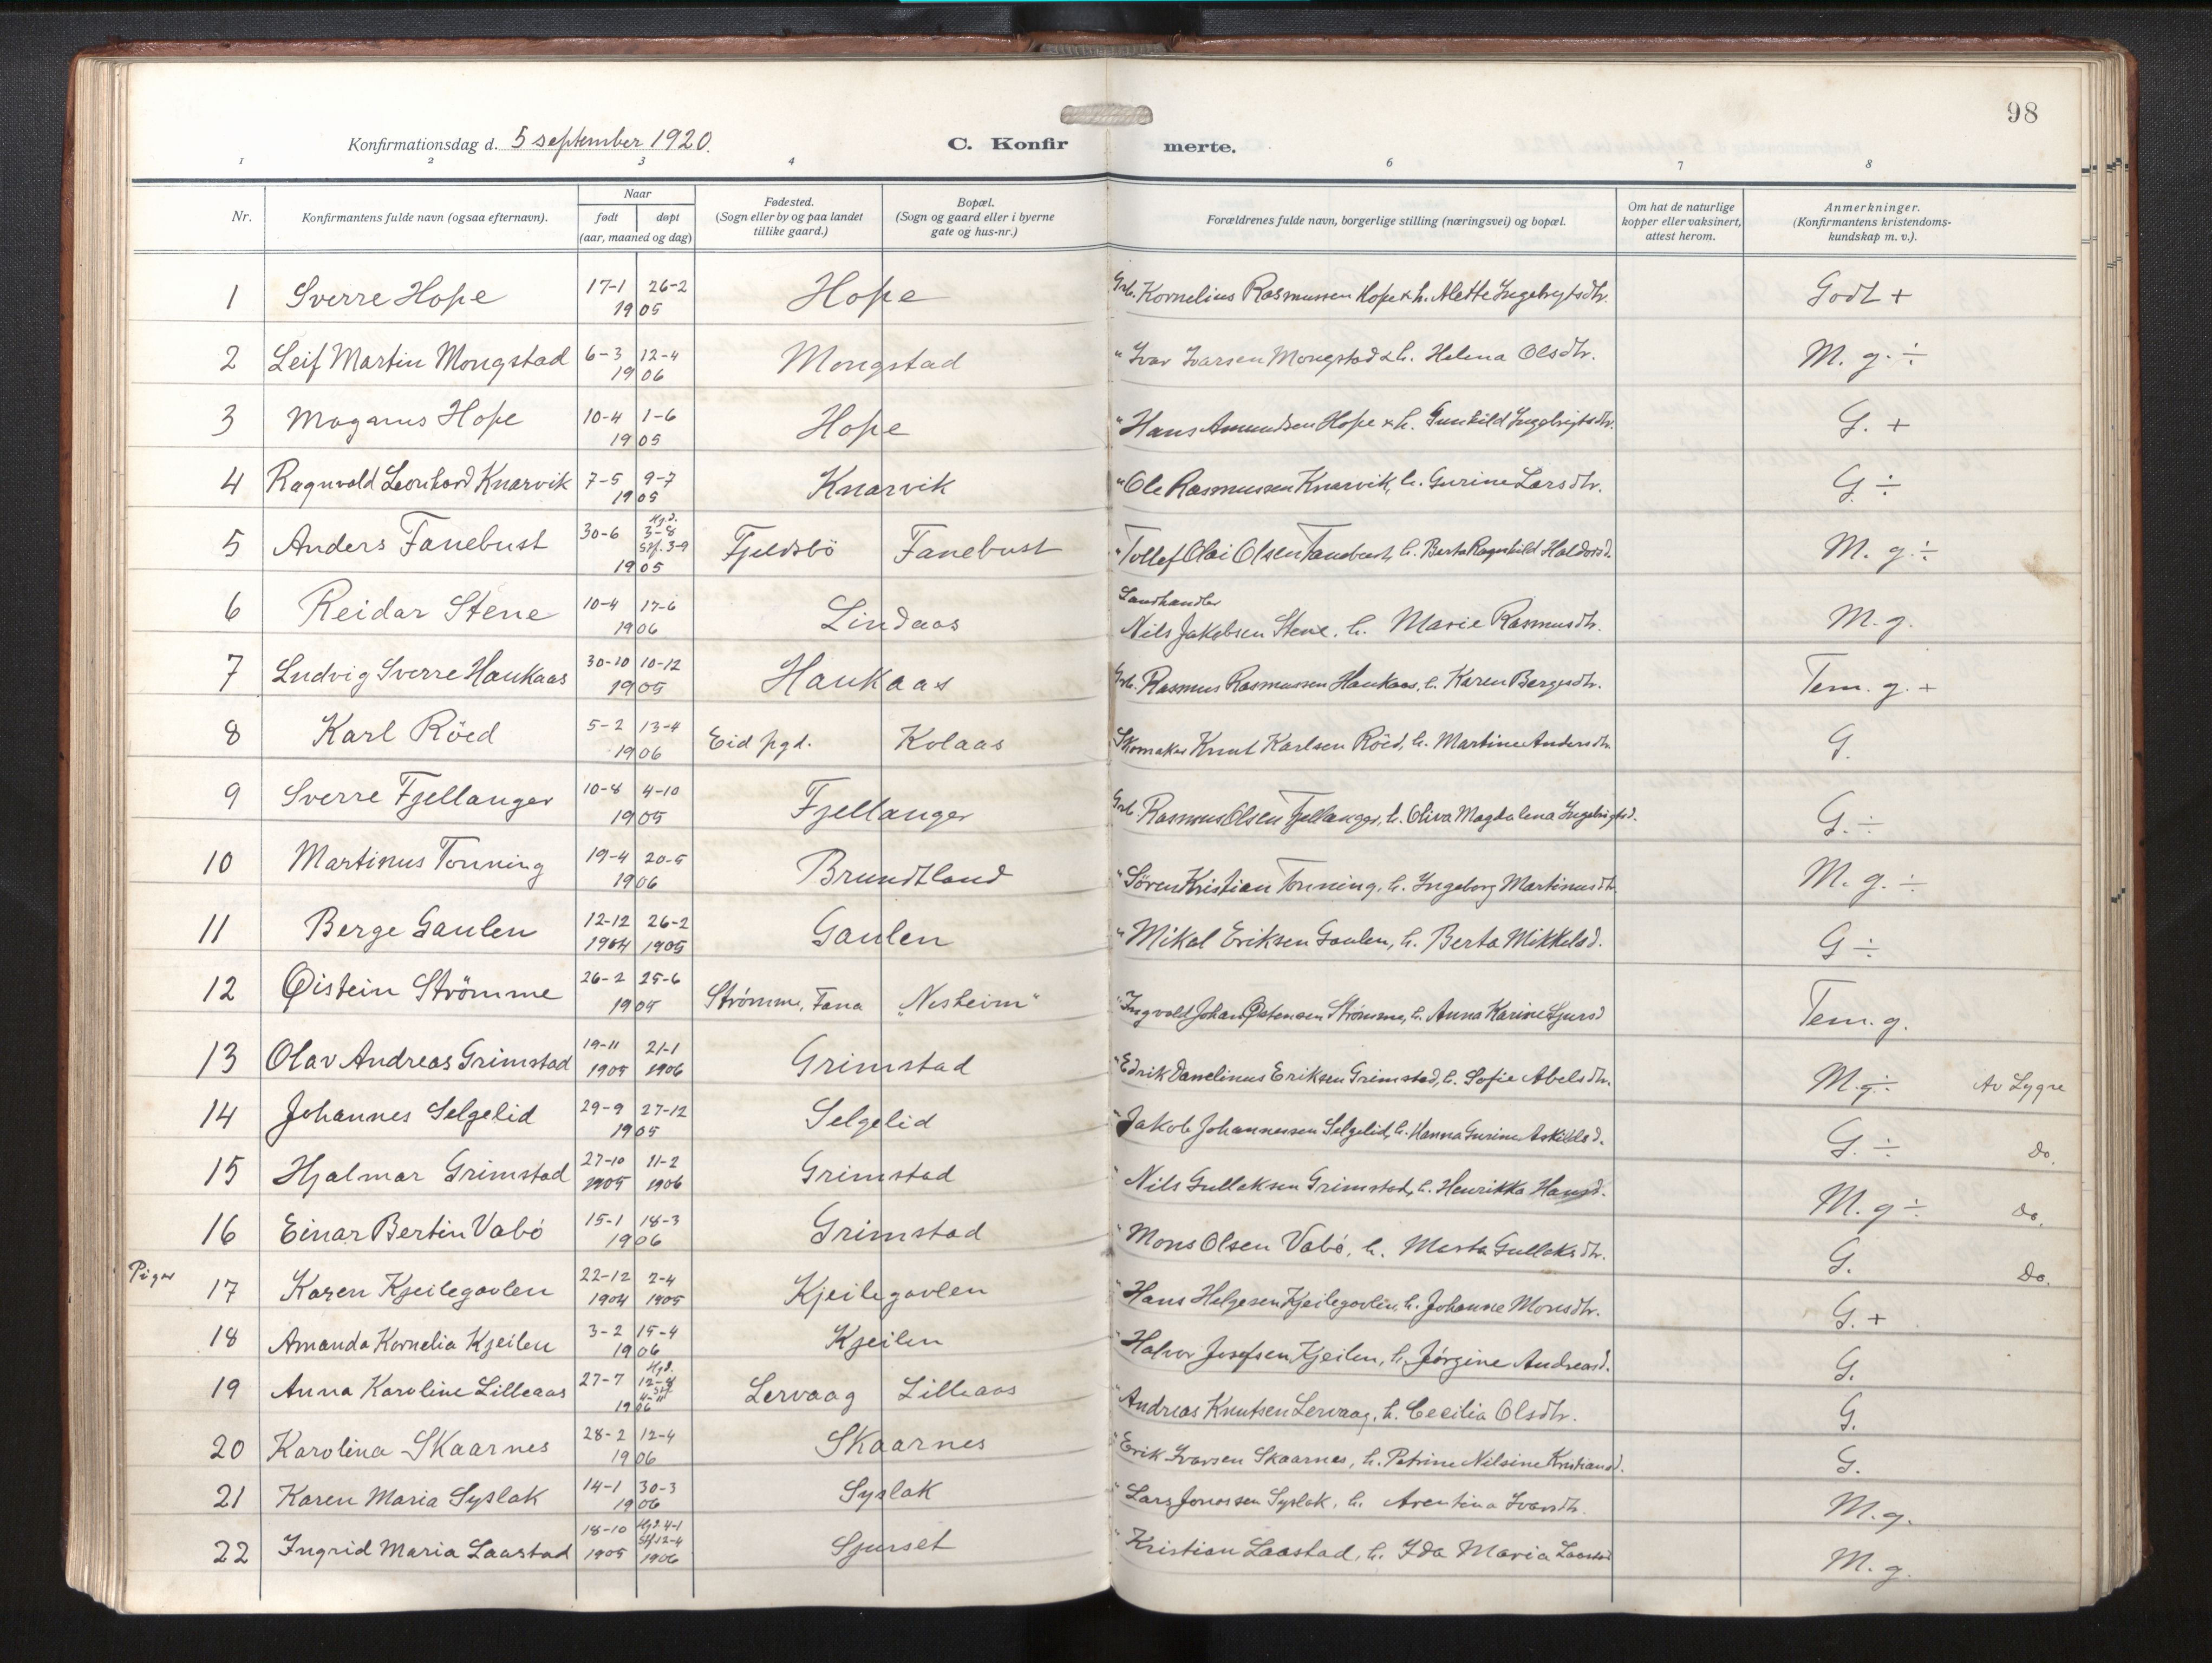 98
Konfirmationsdag d. 5 september 1920.
C. Konfirmerte.
1 2 3 4 6 7 8
Nr. Konfirmantens fulde navn (ogsaa efternavn). Naar født døpt (aar, maaned og dag) Fødested. (Sogn eller by og paa landet tillike gaard.) Bopæl. (Sogn og gaard eller i byerne gate og hus-nr.) Forældrenes fulde navn, borgerlige stilling (næringsvei) og bopæl. Om hat de naturlige kopper eller vaksinert, attest herom. Anmerkninger. (Konfirmantens kristendoms-kundskap m. v.).
1 Sverre Hope 17-1 26-2 1905 Hope Grb. Kornelius Rasmussen Hope & h. Alette Ingebrigtsdtr. Godt +
2 Leif Martin Mongstad 6-3 12-4 1906 Mongstad " Ivar Ivarsen Mongstad & h. Helena Olsdtr. M. g. ÷
3 Magnus Hope 10-4 1-6 1905 Hope " Hans Amundsen Hope & h. Gunhild Ingebrigtsdtr. G. +
4 Ragnvald Leonhard Knarvik 7-5 9-7 1905 Knarvik " Ole Rasmussen Knarvik, h. Gurine Larsdtr. G ÷
5 Anders Fanebust 30-6 Hjd. 3-8 Stf. 3-9 1905 Fjeldsbö Fanebust " Tollef Olai Olsen Fanebust, h. Berta Ragnhild Haldorsd. M. g. ÷
6 Reidar Stene 10-4 17-6 1906 Lindaas Landhandler Nils Jakobsen Stene, h. Marie Rasmusdtr. M. g.
7 Ludvig Sverre Haukaas 30-10 10-12 1905 Haukaas Grb. Rasmus Rasmussen Haukaas, h. Karen Bergesdtr. Tem. g. +
8 Karl Röed 5-2 13-4 1906 Eid pgd. Kolaas Skomaker Knut Karlsen Röed, h. Martine Andersdtr. G.
9 Sverre Fjellanger 10-8 4-10 1905 Fjellanger Grb. Rasmus Olsen Fjellanger, h. Oliva Magdalena Ingebrigtsd. G. ÷
10 Martinus Tonning 19-4 20-5 1906 Brundtland " Sören Kristian Tonning, h. Ingeborg Martinusdtr. M. g. ÷
11 Berge Gaulen 12-12 1904 26-2 1905 Gaulen " Mikal Eriksen Gaulen, h. Berta Mikkelsd. G ÷
12 Øistein Strömme 26-2 25-6 1905 Strömme, Fana "Nesheim" " Ingvald Johan Østensen Strömme, h. Anna Karine Sjursd Tem. g.
13 Olav Andreas Grimstad 19-11 1905 21-1 1906 Grimstad " Edrik Danelinus Eriksen Grimstad, h. Sofie Abelsdtr. M. g. ÷ Av Lygre
14 Johannes Selgelid 29-9 27-12 1905 Selgelid " Jakob Johannessen Selgelid, h. Hanna Gurine Askildsd. G. ÷ Do.
15 Hjalmar Grimstad 27-10 1905 11-2 1906 Grimstad " Nils Gullaksen Grimstad, h. Henrikka Hansd. M. g ÷ Do.
16 Einar Bertin Vabö 15-1 18-3 1906 Grimstad " Mons Olsen Vabö, h. Marta Gullaksdtr. G. Do.
Piger
17 Karen Kjeilegavlen 22-12 1904 2-4 1905 Kjeilegavlen " Hans Helgesen Kjeilegavlen, h. Johanne Monsdtr. G. +
18 Amanda Kornelia Kjeilen 3-2 15-4 1906 Kjeilen " Halvor Josefsen Kjeilen, h. Jörgine Andreasd. G.
19 Anna Karoline Lilleaas 27-7 Hjd. 12-8 Stf 4-11 1906 Lervaag Lilleaas " Andreas Knutsen Lervaag, h. Cecilia Olsdtr. G.
20 Karolina Skaarnes 28-2 12-4 1906 Skaarnes " Erik Ivarsen Skaarnes, h. Petrine Nilsine Kristiansd. G.
21 Karen Maria Syslak 14-1 30-3 1906 Syslak " Lars Jonassen Syslak, h. Arentina Ivarsdtr. M. g.
22 Ingrid Maria Laastad 18-10 1905 Hjd. 4-1 Stf 12-4 1906 Sjurset " Kristian Laastad, h. Ida Maria Laastad M. g.